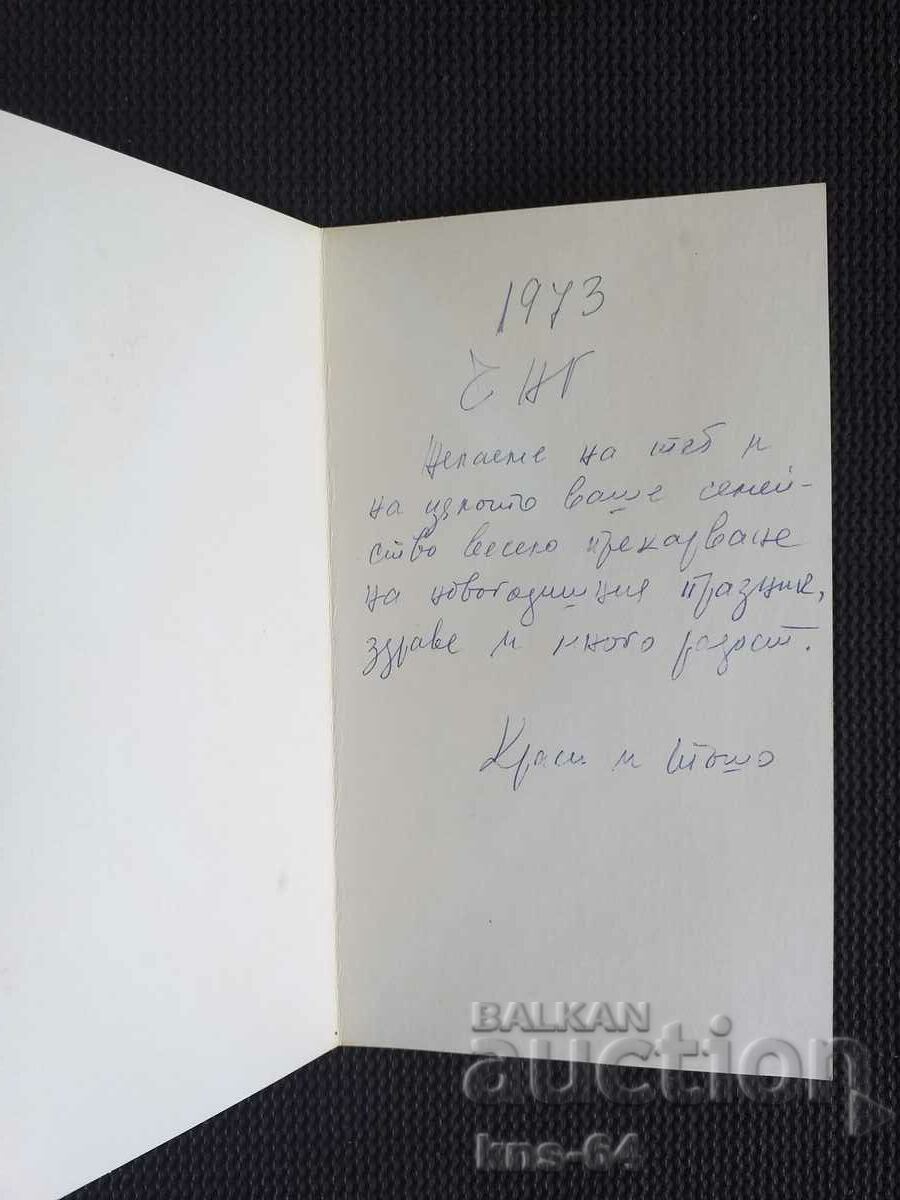 1973
ЧНГ
Желаеме на теб и
на цялото ваше семей-
ство весело прекарване
на новогодишния празник,
здраве и много радост.
Краси и Тошо
BALKAN
auction
kns-64